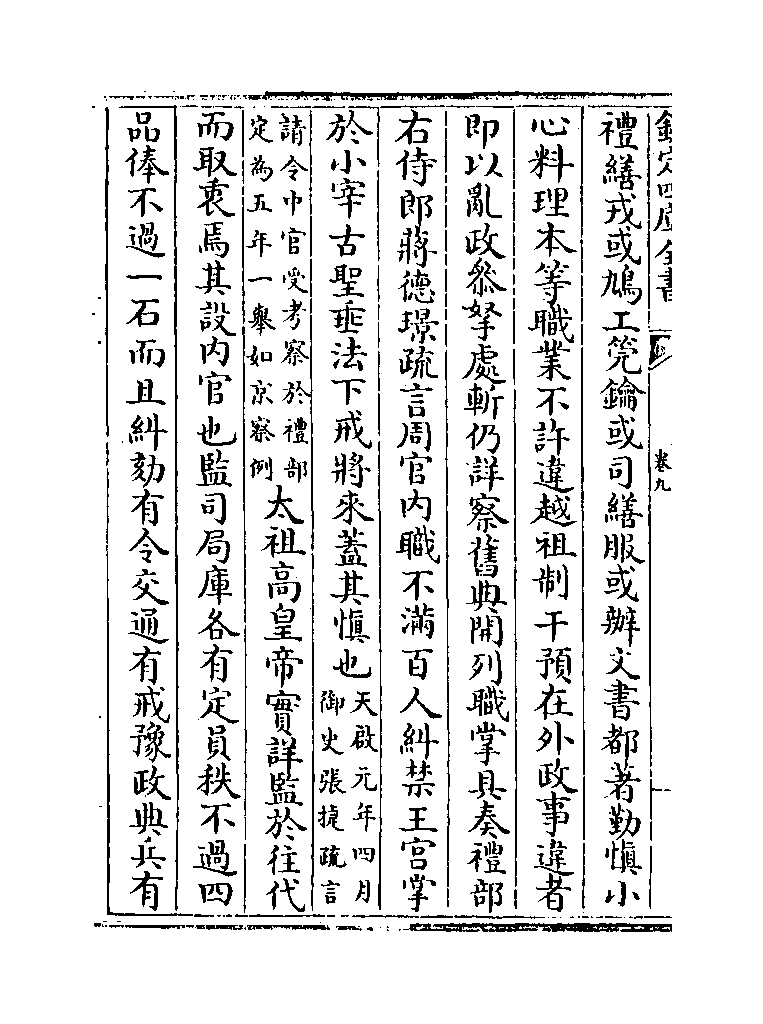 欽定四庫全書
卷九
禮繕戎或鳩工筦鑰或司繕服或辦文書都著勤慎小
心料理本等職業不許違越祖制干預在外政事違者
即以亂政叅拏處斬仍詳察舊典開列職掌具奏禮部
右侍郎蔣德璟疏言周官内職不滿百人糾禁王宮掌
於小宰古聖垂法下戒將來蓋其慎也天啟元年四月
御史張捷疏言
請令中官受考察於禮部
定為五年一舉如京察例太祖高皇帝實詳監於往代
而取衷焉其設内官也監司局庫各有定員秩不過四
品俸不過一石而且糾劾有令交通有戒豫政典兵有